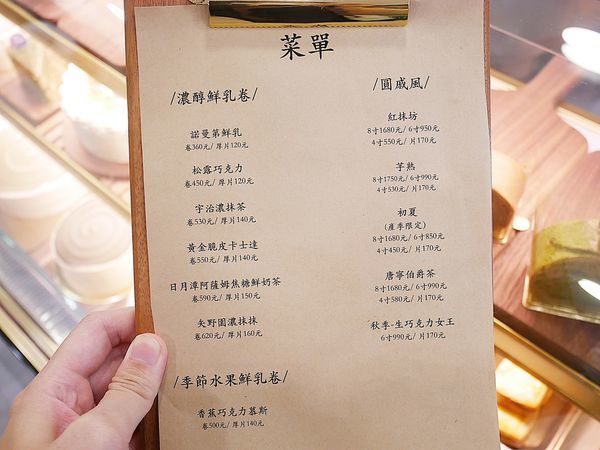 菜單
/濃醇鮮乳卷/
諾曼第鮮乳
卷360元/ 厚片120元
松露巧克力
卷450元/ 厚片120元
宇治濃抹茶
卷530元/ 厚片140元
黃金脆皮卡士達
卷550元/ 厚片140元
日月潭阿薩姆焦糖鮮奶茶
卷590元/ 厚片150元
矢野園濃抹抹
卷620元/ 厚片160元
/季節水果鮮乳卷/
香蕉巧克力慕斯
卷500元/ 厚片140元
/圓戚風/
紅抹坊
8寸1680元/ 6寸950元
4寸550元/ 片170元
芋熟
8寸1750元/ 6寸990元
4寸530元/ 片170元
初夏
(產季限定)
8寸1680元/ 6寸850元
4寸450元/ 片170元
唐寧伯爵茶
8寸1680元/ 6寸990元
4寸580元/ 片170元
秋季-生巧克力女王
6寸990元/ 片170元